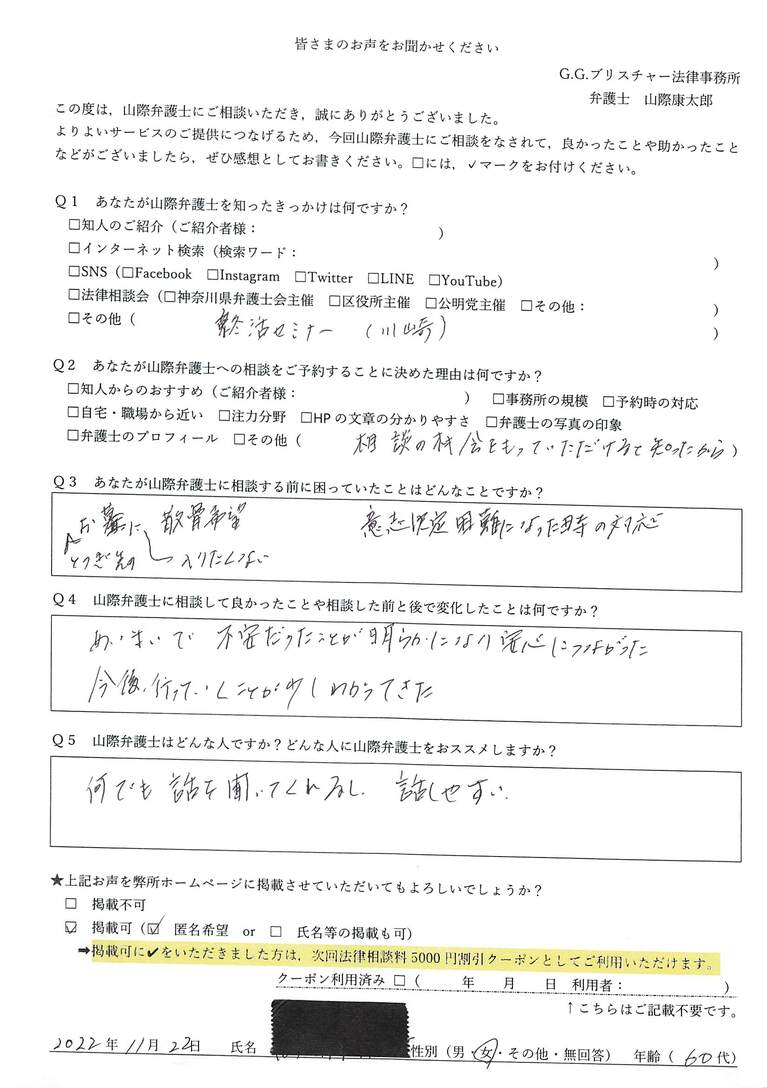 皆さまのお声をお聞かせください
G.G.ブリスチャー法律事務所
弁護士　山際康太郎
この度は，山際弁護士にご相談いただき，誠にありがとうございました。
よりよいサービスのご提供につなげるため，今回山際弁護士にご相談をなされて，良かったことや助かったこと
などがございましたら，ぜひ感想としてお書きください。□には，✓マークをお付けください。
Ｑ１　あなたが山際弁護士を知ったきっかけは何ですか？
□知人のご紹介（ご紹介者様：　　　　　　　　　　）
□インターネット検索（検索ワード：　　　　　　　　　　）
□SNS（□Facebook　□Instagram　□Twitter　□LINE　□YouTube）
□法律相談会（□神奈川県弁護士会主催　□区役所主催　□公明党主催　□その他：　　　　　）
□その他（　終活セミナー　（川崎）　）
Ｑ２　あなたが山際弁護士への相談をご予約することに決めた理由は何ですか？
□知人からのおすすめ（ご紹介者様：　　　　　　　　）　□事務所の規模　□予約時の対応
□自宅・職場から近い　□注力分野　□HPの文章の分かりやすさ　□弁護士の写真の印象
□弁護士のプロフィール　□その他（　相談の機会をもっていただけると知ったから）
Ｑ３　あなたが山際弁護士に相談する前に困っていたことはどんなことですか？
お墓に　散骨希望　　意志決定困難になった時の対応
とつぎ先の　入りたくない
Ｑ４　山際弁護士に相談して良かったことや相談した前と後で変化したことは何ですか？
あいまいで　不安だったことが明らかになり安心につながった
今後、行っていくことが少しわかってきた
Ｑ５　山際弁護士はどんな人ですか？どんな人に山際弁護士をおススメしますか？
何でも　話を聞いてくれるし、　話しやすい。
★上記お声を弊所ホームページに掲載させていただいてもよろしいでしょうか？
□　掲載不可
☑　掲載可（☑　匿名希望　or　□　氏名等の掲載も可）
➡掲載可に✔をいただきました方は，次回法律相談料5000円割引クーポンとしてご利用いただけます。
クーポン利用済み　□（　　　年　　月　　日　利用者：　　　　　　）
↑こちらはご記載不要です。
2022年　11月　22日　氏名　性別（男・女・その他・無回答）　年齢（　60代）